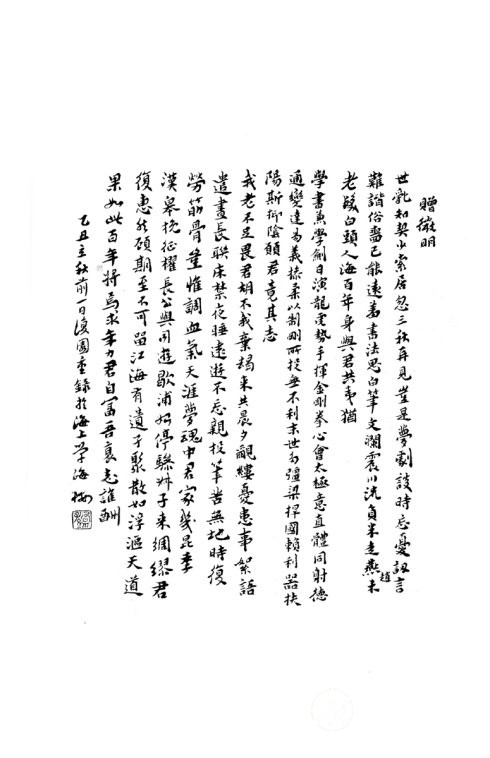 贈微明
世亂知契少索居忽三秋再見豈是夢劇談時忘憂訒言
難諧俗嗇己能遠 書法思白筆文瀾震川流負米走燕趙未
老鬢白頭人海百年身與君共夷猶
學書兼學劍日演龍虎勢手揮金剛拳心會太極意直體同射德
通變達易義揉柔以制剛所投無不利末世多彊梁捍國賴利器扶
陽斯抑陰願君竟其志
我老不足畏君胡不我棄朅來共晨夕覼縷憂患事絮語
遣晝長聯床禁夜睡遠遊不忘親投筆苦無地時復
勞筋骨 惟調血氣天涯夢魂中君家幾昆季
漢皋挽征櫂長公與同遊歇浦 停驂 子來綢繆君
復惠然顧期至不可留江海有遺子聚散如浮漚天道
果如此百年將焉求年力君自富吾衰志誰酬
乙丑立秋前一日復園 錄於海上學海